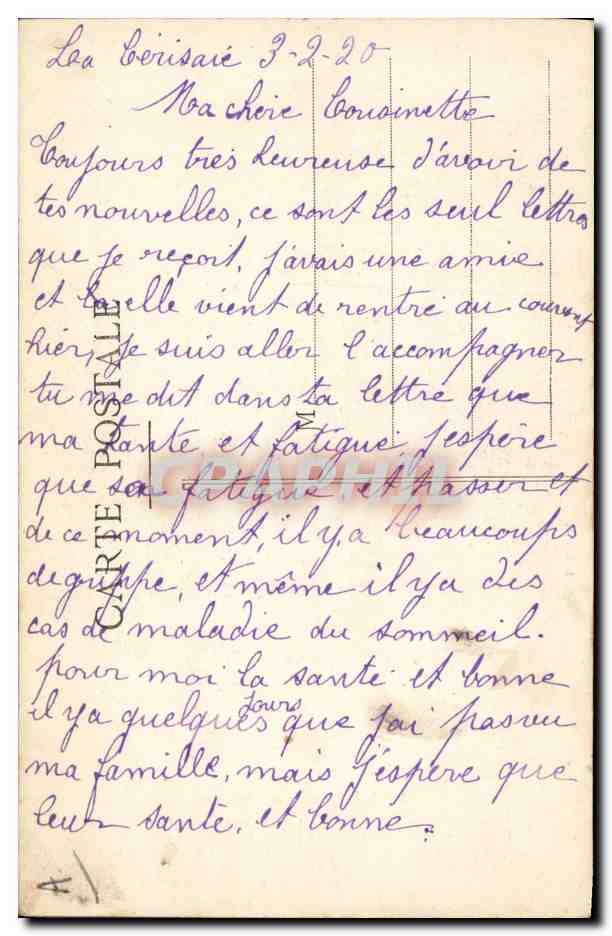 La Cérisaie 3-2-20
Ma chère Cousinette
Toujours très heureuse d'avoir de
tes nouvelles, ce sont les seul lettres
que je reçoit, j'avais une amie
et elle vient de rentré au couvent
hier, je suis aller l'accompagner
tu me dit dans ta lettre que
ma tante et fatigué, j'espère
que sa fatigue et passer et
de ce moment, il y a beaucoups
de grippe, et même il y a des
cas de maladie du sommeil.
pour moi la santé et bonne
il y a quelques jours que j'ai pas vu
ma famille, mais j'espère que
leur sante, et bonne.
CARTE POSTALE
M
CPARAMA